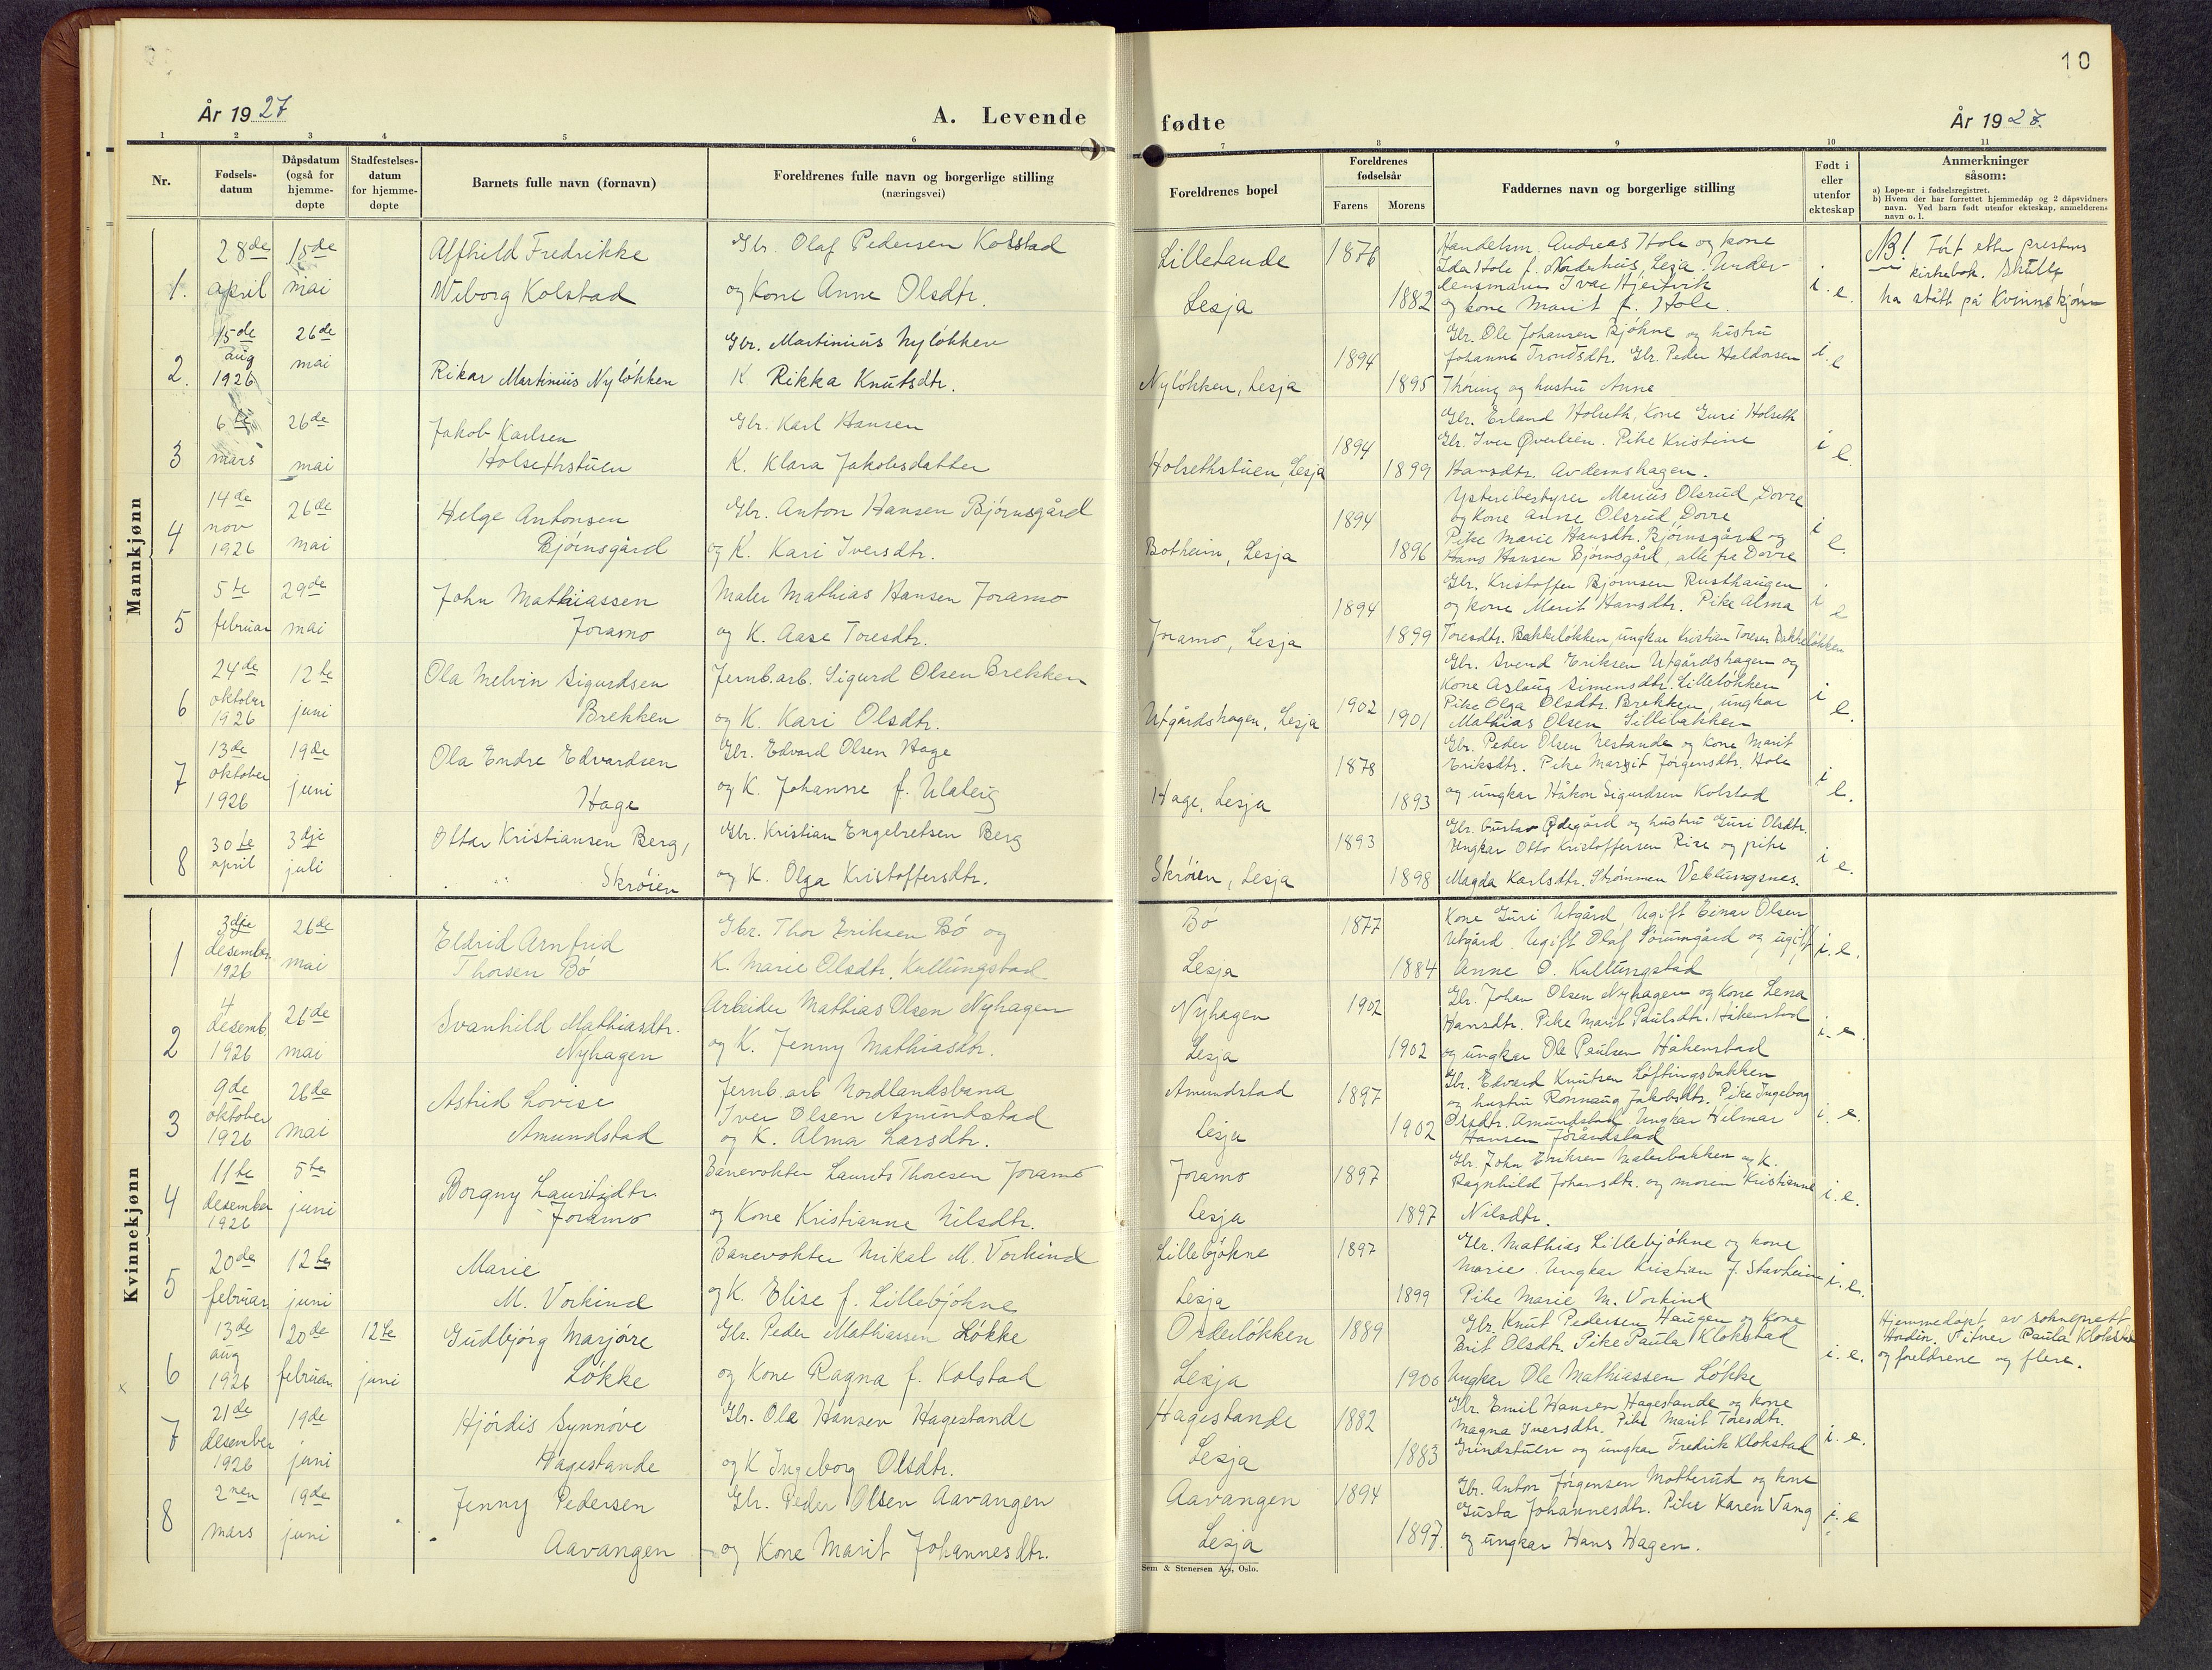 10
År 1927
A. Levende
fødte
År 1927.
1
2
3
4
5
6
7
8
9
10
11
Nr.
Fødsels-
datum
Dåpsdatum
(også for
hjemme-
døpte
Stadfestelses-
datum
for hjemme-
døpte
Barnets fulle navn (fornavn)
Foreldrenes fulle navn og borgerlige stilling
(næringsvei)
Foreldrenes bopel
Foreldrenes
fødselsår
Farens
Morens
Faddernes navn og borgerlige stilling
Født i
eller
utenfor
ekteskap
Anmerkninger
såsom:
a) Løpe-nr i fødselsregistret.
b) Hvem der har forrettet hjemmedåp og 2 dåpsvidners
navn. Ved barn født utenfor ekteskap, anmelderens
navn o. l.
Mannkjønn
1.
28de
april
15de
mai
Alfhild Fredrikke
Wiborg Kolstad
Gbr. Olaf Pedersen Kolstad
og Kone Anne Olsdtr.
Lillehande
Lesja
1876
1882
Handelsm. Andreas Hole og kone
Ida Hole f. Norderhus, Lesja. Under-
lensmann Ivar Hjertvik
og kone Marit f. Hole.
i. e.
NB! Ført etter prestens
kirkebok. Skulle
ha stått på Kvinnekjønn
2.
15de
aug
1926
26de
mai
Rikar Martinius Nyløkken
Gbr. Martinius Nyløkken
K Rikka Knutsdtr.
Nyløkken, Lesja
1894
1895
Gbr. Ole Johansen Bjøkne og hustru
Johanne Trondsdtr. Gbr. Peder Haldorsen
Thøring og hustru Anne
i. e
3
6te
mars
26de
mai
Jakob Karlsen
Holsethstuen
Gbr. Karl Hansen
K. Klara Jakobsdatter
Holsethstuen, Lesja
1894
1899
Gbr. Erland Holseth, Kone Guri Holseth
Gbr. Iver Øverlien. Pike Kristine
Hansdtr. Avdemshagen.
i e.
4
14de
nov
1926
26de
mai
Helge Antonsen
Bjørnsgård
Gbr. Anton Hansen Bjørnsgård
og K. Kari Iversdtr.
Botheim, Lesja
1894
1896
Ysteribestyrer Marius Olsrud, Dovre
og Kone Anne Olsrud, Dovre
Pike Marie Hansdtr. Bjørnsgård og
Hans Hansen Bjørnsgård, alle fra Dovre
i e.
5
5te
februar
29de
mai
John Mathiassen
Joramo
Maler Mathias Hansen Joramo
og K. Aase Toresdtr.
Joramo, Lesja
1894
1899
Gbr. Kristoffer Bjørnsen Rusthaugen
og kone Marit Hansdtr. Pike Alma
Toresdtr. Bakkeløkken, ungkar Kristian Toresen Bakkeløkken
i e
6
24de
oktober
1926
12te
juni
Ola Melvin Sigurdsen
Brekken
Jernb.arb. Sigurd Olsen Brekken
og K. Kari Olsdtr.
Utgårdshagen, Lesja
1902
1901
Gbr. Svend Eriksen Utgårdshagen og
Kone Aslaug Simensdtr. Lilleløkken
Pike Olga Olsdtr. Brekken, ungkar
Mathias Olsen Lillebakken
i e.
7
13de
oktober
1926
19de
juni
Ola Endre Edvardsen
Hage
Gbr. Edvard Olsen Hage
og K. Johanne f. Ulateig
Hage, Lesja
1878
1893
Gbr. Peder Olsen Nestande og Kone Marit
Eriksdtr. Pike Margit Jørgensdtr. Hole
og ungkar Håkon Sigurdsen Kolstad
i e.
8
30te
april
3dje
juli
Ottar Kristiansen Berg,
Skrøien
Gbr. Kristian Engebretsen Berg
og K. Olga Kristoffersdtr.
Skrøien, Lesja
1893
1898
Gbr. Gustav Ødegård og hustru Guri Olsdtr.
Ungkar Otto Kristoffersen Rise og pike
Magda Karlsdtr. Strømmen Veblungsnes.
i e.
Kvinnekjønn
1
3dje
desember
1926
26de
mai
Eldrid Arnfrid
Thorsen Bø
Gbr. Thor Eriksen Bø og
K. Marie Olsdtr. Kullungstad
Bø
Lesja
1877
1884
Kone Guri Utgård Ugift Einar Olsen
Utgård. Ugift Olaf Sørumgård og ugift
Anne O. Kullungstad
i. e.
2
4
desemb.
1926
26de
mai
Svanhild Mathiasdtr.
Nyhagen
Arbeider Mathias Olsen Nyhagen
og K. Jenny Mathiasdtr.
Nyhagen
Lesja
1902
1902
Gbr. Johan Olsen Nyhagen og Kone Lena
Hansdtr. Pike Marit Paulsdtr. Håkenstad
og ungkar Ole Paulsen Håkenstad
i. e.
3
9de
oktober
1926
26de
mai
Astrid Lovise
Amundstad
Jernb.arb Nordlandsbana
Iver Olsen Amundstad
og K. Alma Larsdtr.
Amundstad
Lesja
1897
1902
Gbr. Edvard Knutsen Løftingsbakken
og hustru Rønnaug Jakobsdtr. Pike Ingeborg
Olsdtr. Amundstad. Ungkar Hilmar
Hansen Jørårdstad
i. e.
4
11te
desember
1926
5te
juni
Borgny Lauritzdtr.
Joramo
Banevokter Laurits Thoresen Joramo
og Kone Kristianne Nilsdtr.
Joramo
Lesja
1897
1897
Gbr. John Eriksen Malerbakken og K.
Ragnhild Johansdtr. og moren Kristianne
Nilsdtr.
i. e.
5
20de
februar
12te
juni
Marie
M. Vorkind
Banevokter Mikal M. Vorkind
og K. Elise f. Lillebjøkne
Lillebjøkne
Lesja
1897
1899
Gbr. Mathias Lillebjøkne og kone
Marie. Ungkar Kristian J. Stavheim
Pike Marie M. Vorkind
i. e.
6
13de
aug
1926
20de
februar
12te
juni
Gudbjørg Marjøre
Løkke
Gbr. Peder Mathiassen Løkke
og Kone Ragna f. Kolstad
Orderløkken
Lesja
1889
1900
Gbr. Knut Pedersen Haugen og Kone
Brit Olsdtr. Pike Paula Klokstad
Ungkar Ole Mathiassen Løkke
i. e.
Hjemmedøpt av sokneprest
Hordin. Vitner Paula Klokstad
og foreldrene og flere.
x
7
21de
desember
1926
19de
juni
Hjørdis Synnøve
Hagestande
Gbr. Ole Hansen Hagestande
og K Ingeborg Olsdtr.
Hagestande
Lesja
1882
1883
Gbr. Emil Hansen Hagestande og kone
Magna Iversdtr. Pike Marit Toresdtr.
Grindstuen og ungkar Fredrik Klokstad
i. e.
8
2nen
mars
19de
juni
Jenny Pedersen
Aavangen
Gbr. Peder Olsen Aavangen
og Kone Marit Johannesdtr.
Aavangen
Lesja
1894
1897.
Gbr. Anton Jørgensen Motterud og kone
Gusta Johannesdtr. Pike Karen Vang
og ungkar Hans Hagen.
i. e
Sem & Stenersen A/s, Oslo.